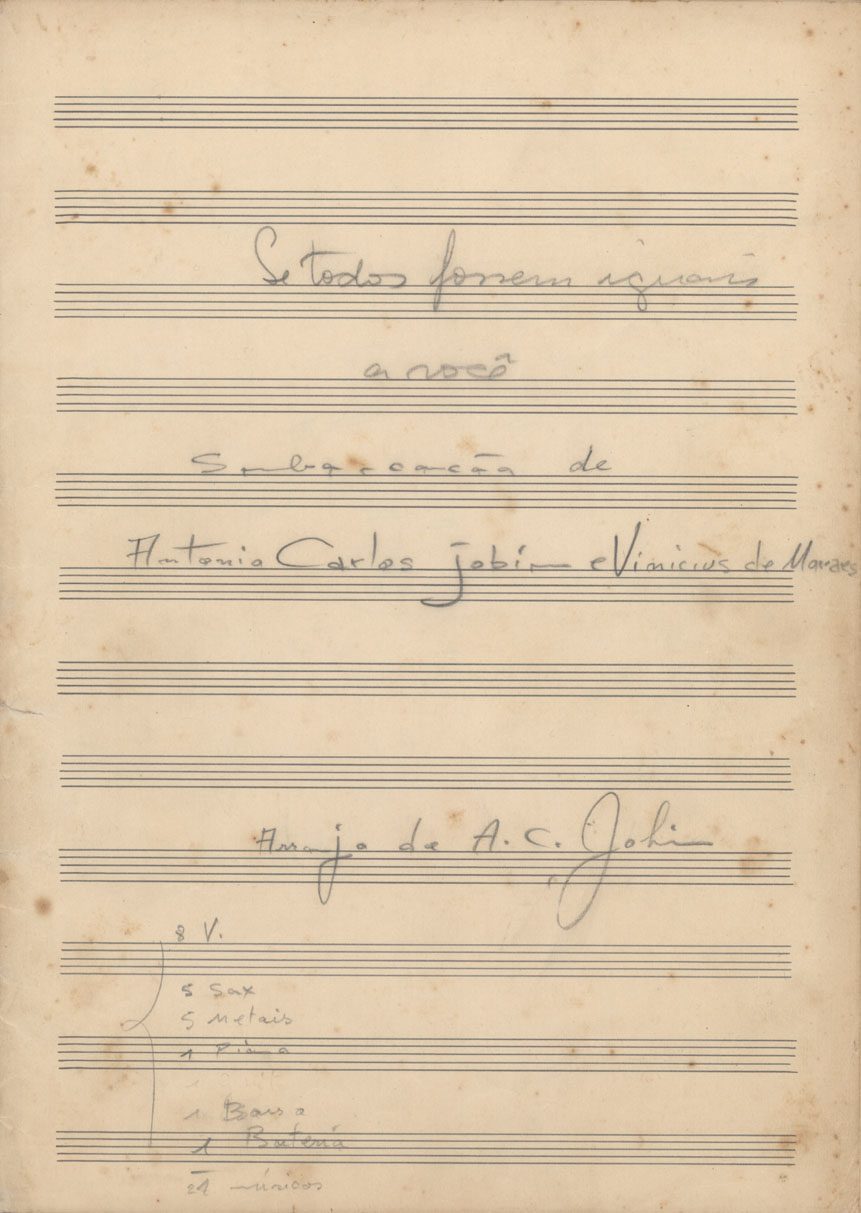 Se todos fossem iguais
a você
Samba-canção de
Antonio Carlos Jobim e Vinicius de Moraes
Arranjo de A. C. Jobim
8 V.
5 Sax
5 Metais
1 Piano
1 Baixo
1 Bateria
21 músicos